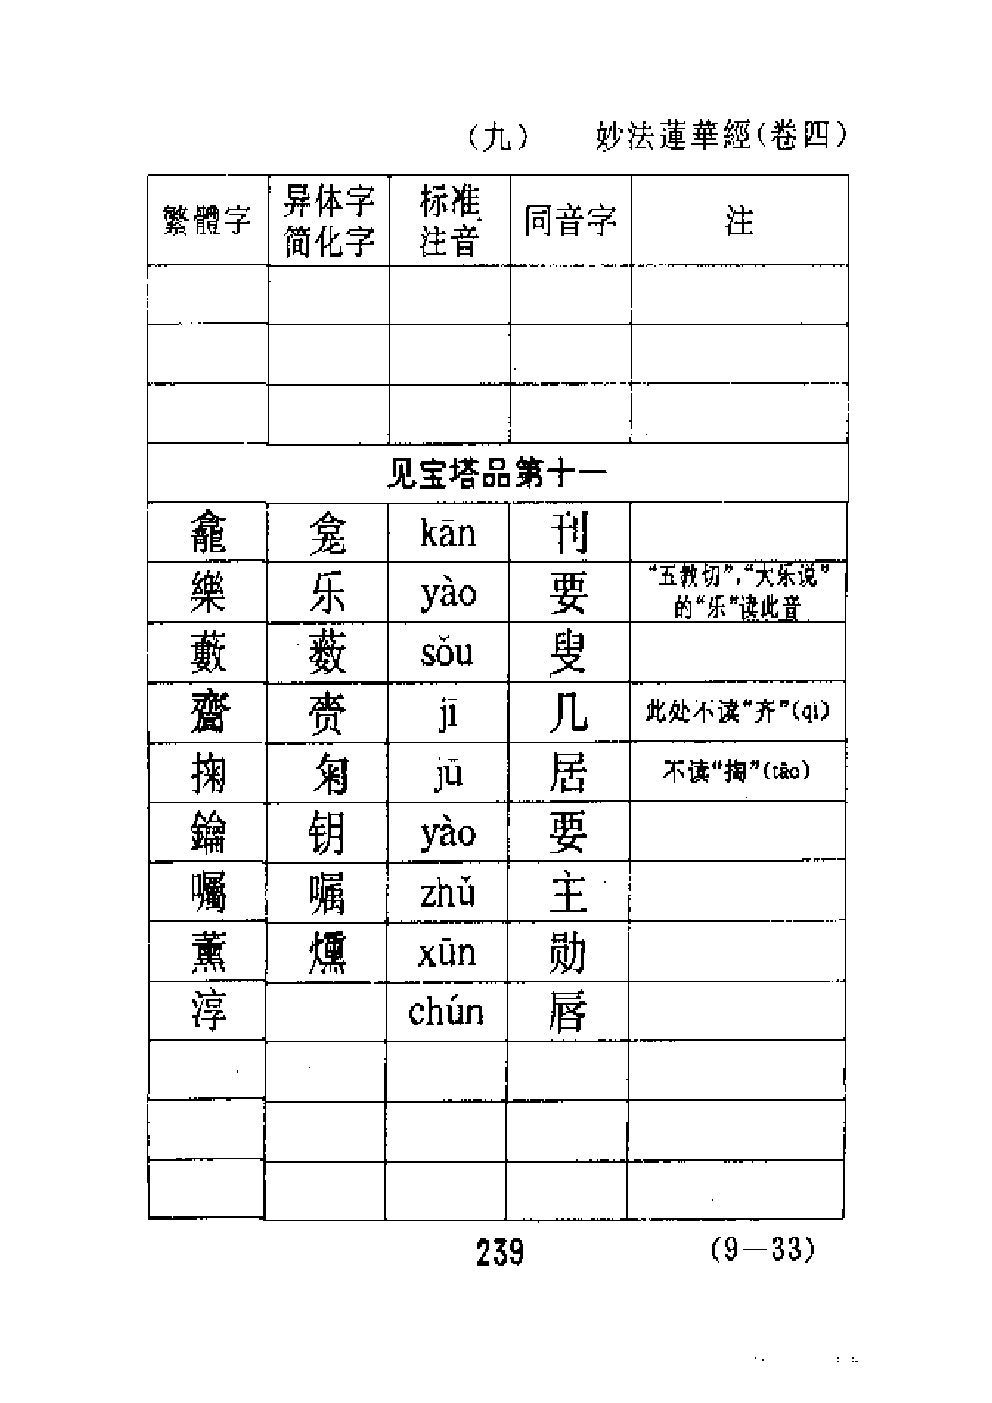 （九） 妙法蓮華經（卷四）
繁體字 异体字 简化字 标准注音 同音字 注
见宝塔品第十一
龕 龛 kān 刊
樂 乐 yào 要 “五教切”，“大乐说”的“乐”读此音
藪 薮 sǒu 叟
齎 赍 jī 几 此处不读“齐”(qí)
掬 匊 jū 居 不读“掏”(tāo)
鑰 钥 yào 要
囑 嘱 zhǔ 主
薰 燻 xūn 勋
淳 chún 唇
239 (9—33)